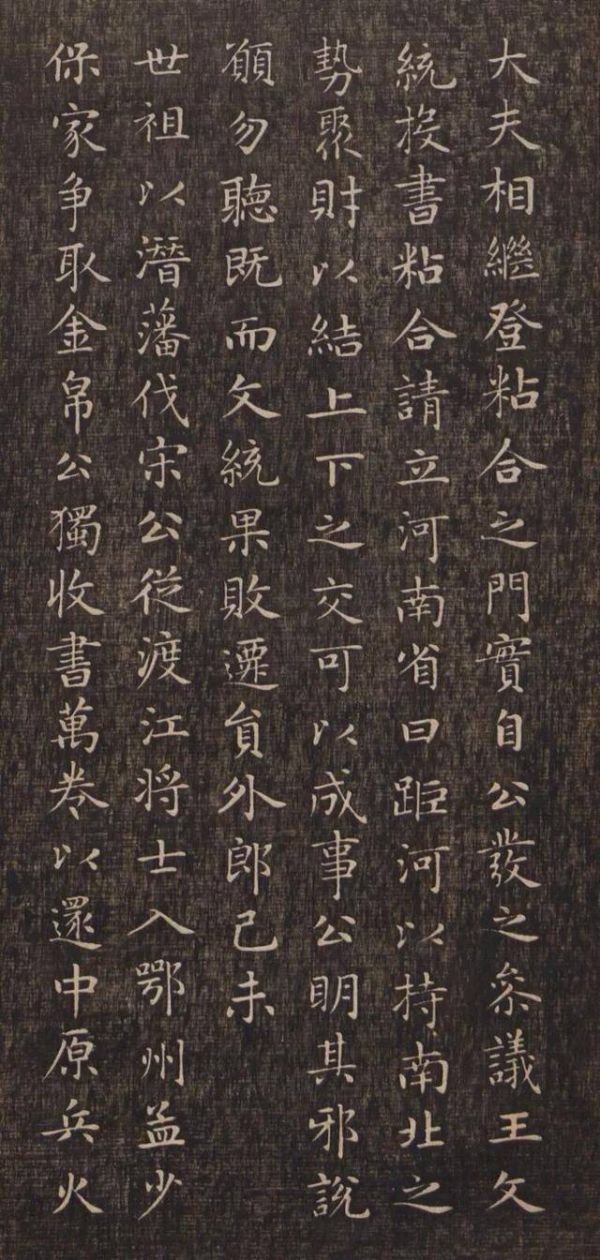 大夫相繼登粘合之門實自公發之叅議王文
統投書粘合請立河南省曰距河以持南北之
勢聚財以結上下之交可以成事公明其邪說
願勿聽既而文統果敗遷負外郎己未
世祖以潛藩伐宋公從渡江將士入鄂州益少
保家爭取金帛公獨收書萬卷以還中原兵火